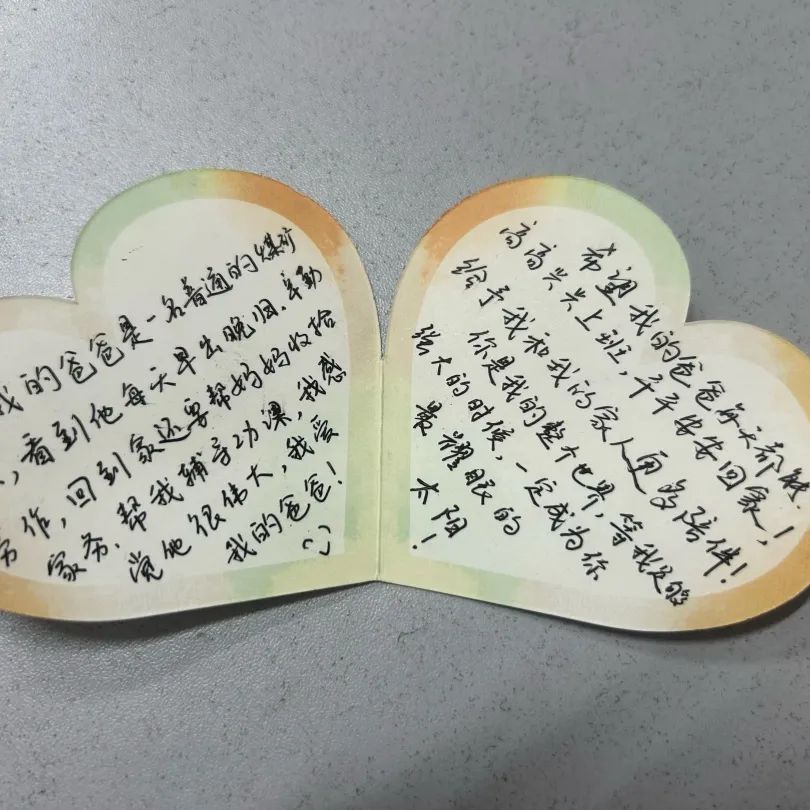 我的爸爸是一名普通的煤矿
，看到他每天早出晚归、辛勤
劳作，回到家还要帮妈妈收拾
家务、帮我辅导功课，我感
觉他很伟大，我爱
我的爸爸！
希望我的爸爸每天都能
高高兴兴上班，平平安安回家！
给予我和我的家人更多陪伴！
你是我的整个世界，等我足够
强大的时候，一定成为你
最耀眼的
太阳
！